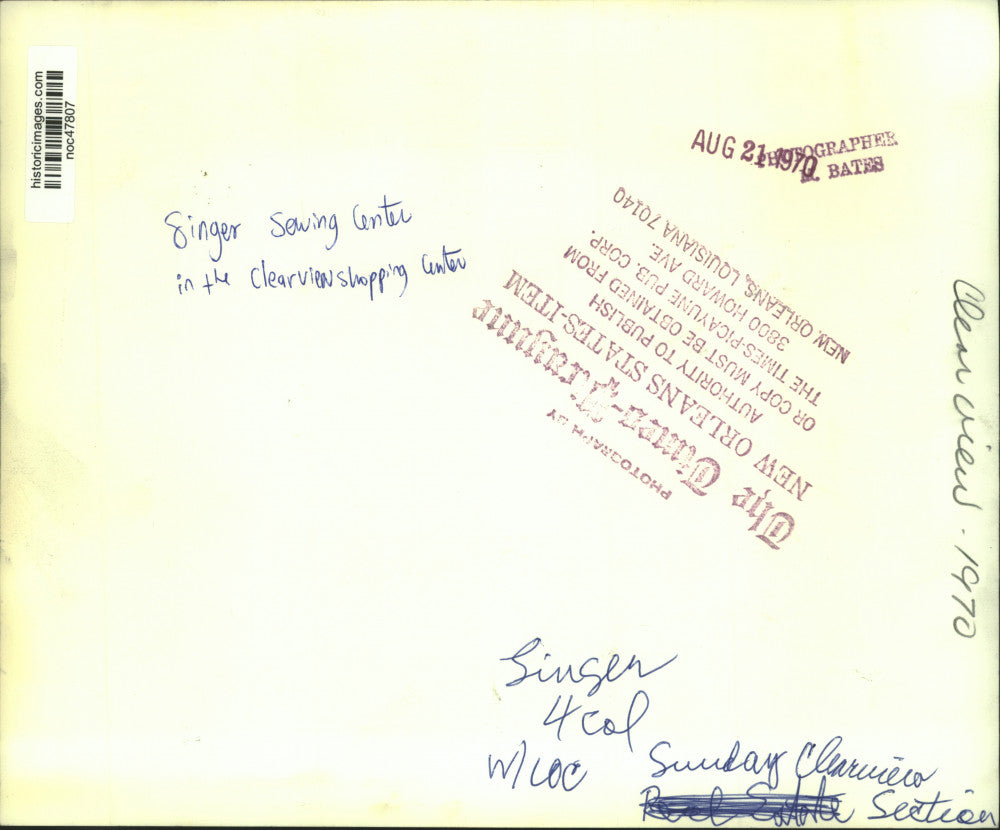 historicimages.com
noc47807
AUG 21 1970
PHOTOGRAPHER
M. BATES
Singer Sewing Center
in the Clearview shopping Center
PHOTOGRAPH BY
The Times-Picayune
NEW ORLEANS STATES-ITEM
AUTHORITY TO PUBLISH
OR COPY MUST BE OBTAINED FROM
THE TIMES-PICAYUNE PUB. CORP.
3800 HOWARD AVE.
NEW ORLEANS, LOUISIANA 70140
Clearview - 1970
Singer
4 col
w/LOC
Sunday Clearview
Real Estate Section